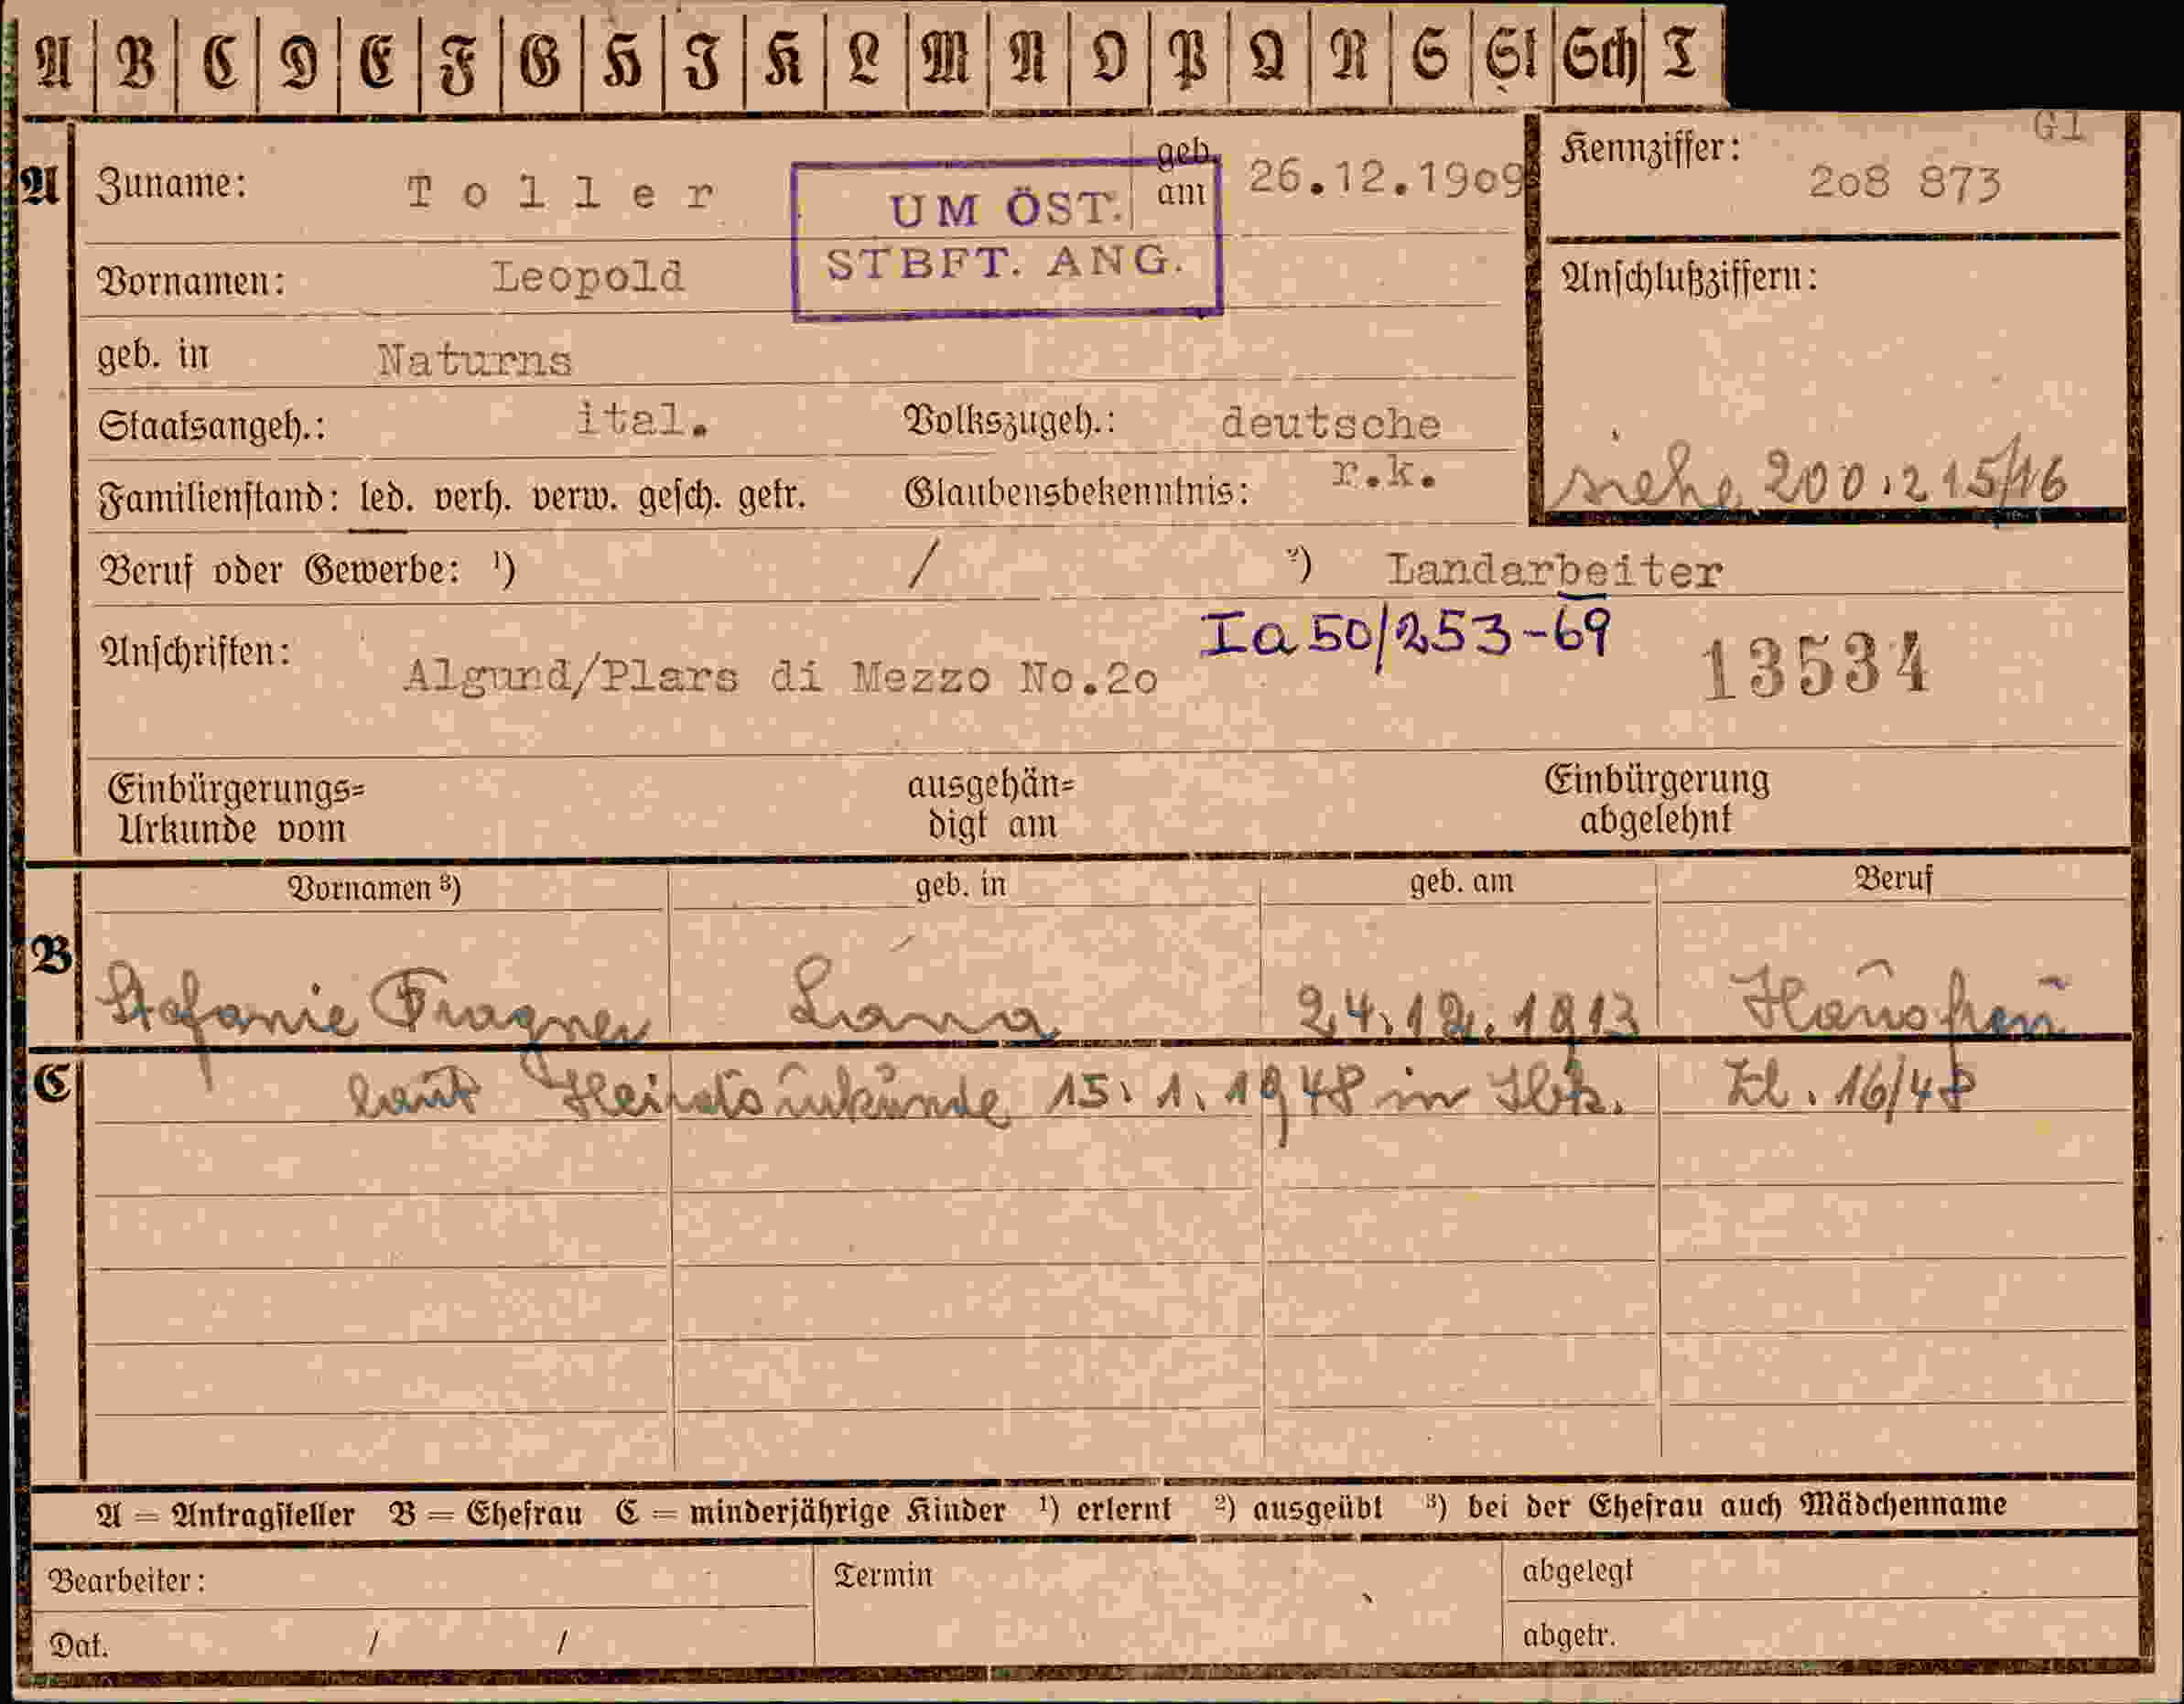 A B C D E F G H I K L M N O P Q R S St Sch T
G1
A Zuname: Toller geb. am 26.12.19o9 Kennziffer: 2o8 873
UM ÖST.
STBFT. ANG.
Vornamen: Leopold Anschlußziffern:
geb. in Naturns
Staatsangeh.: ital. Volkszugeh.: deutsche
Familienstand: led. verh. verw. gesch. getr. Glaubensbekenntnis: r.k. siehe 200.215/16
Beruf oder Gewerbe: ¹) / ²) Landarbeiter
Anschriften: Algund/Plars di Mezzo No.2o Ia 50/253-69 13534
Einbürgerungs= ausgehän= Einbürgerung
Urkunde vom digt am abgelehnt
Vornamen ³) geb. in geb. am Beruf
B Stefanie Fragner Lána 24.12.1913 Hausfrau
C laut Heiratsurkunde 15.1.1948 in Ibk. Zl. 16/48
A = Antragsteller B = Ehefrau C = minderjährige Kinder ¹) erlernt ²) ausgeübt ³) bei der Ehefrau auch Mädchenname
Bearbeiter: Termin abgelegt
Dat. / / abgetr.